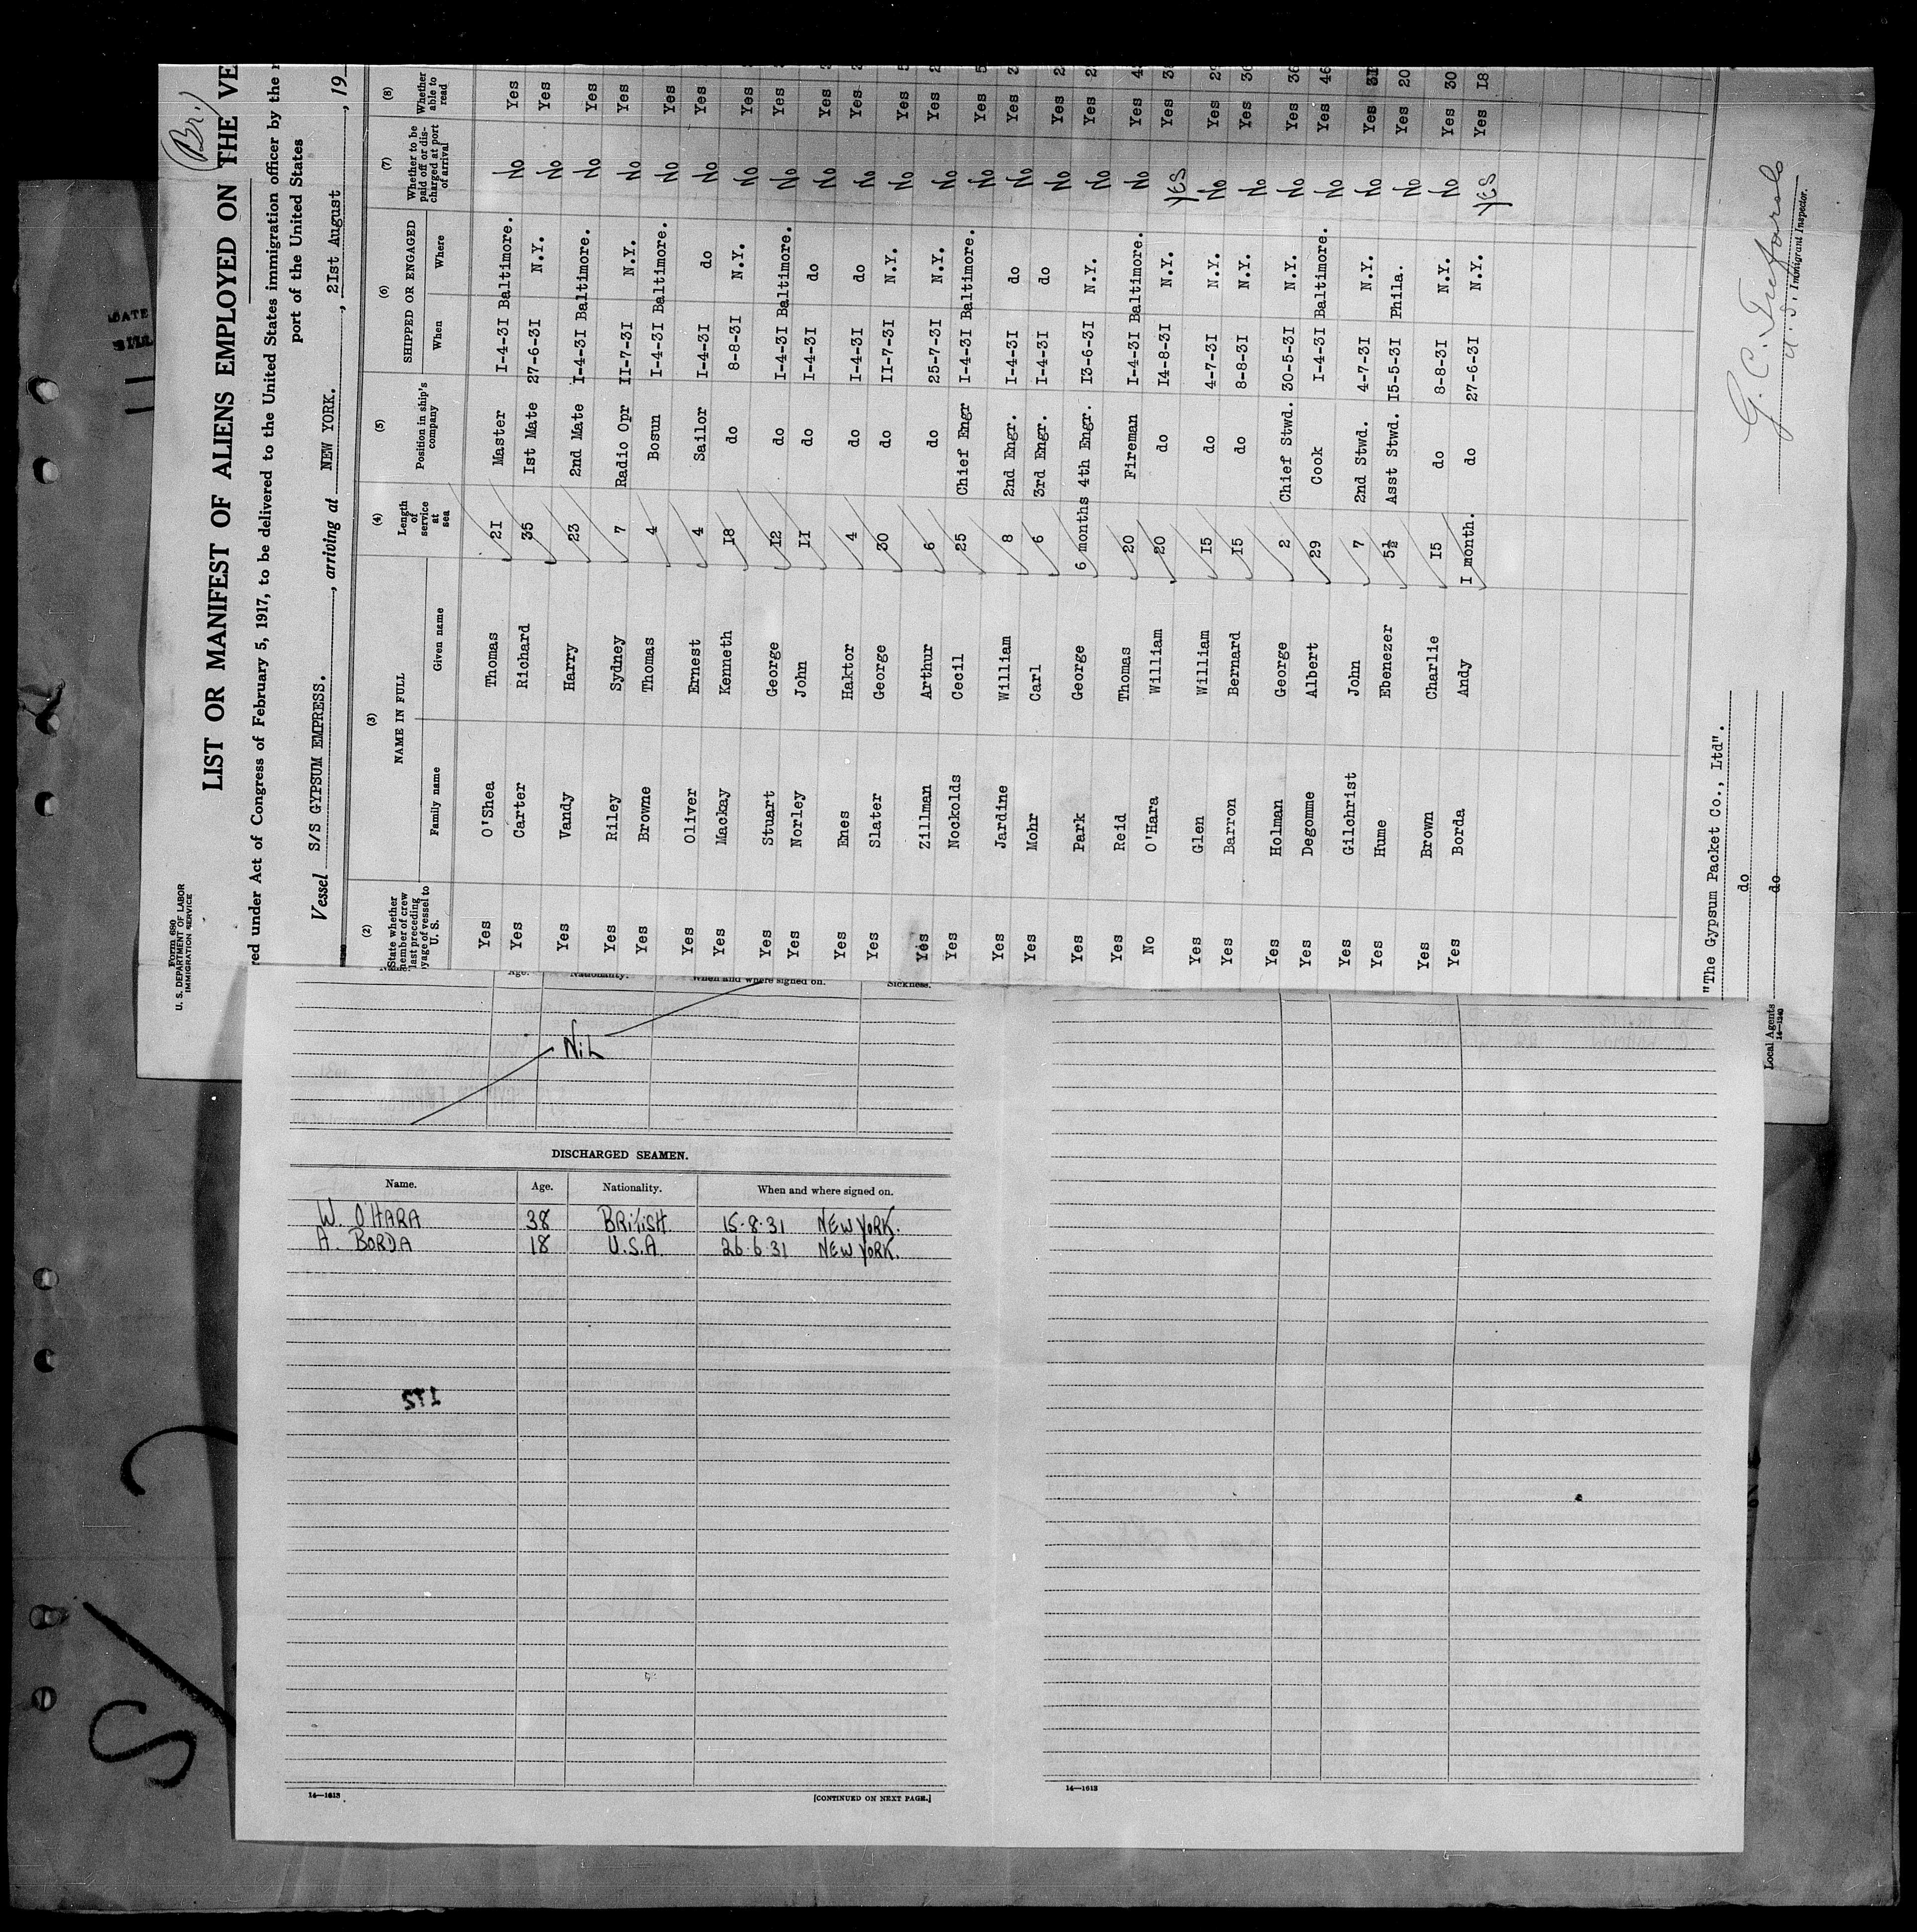 Form 680
U. S. DEPARTMENT OF LABOR
IMMIGRATION SERVICE
(Br.)
LIST OR MANIFEST OF ALIENS EMPLOYED ON THE VE
red under Act of Congress of February 5, 1917, to be delivered to the United States immigration officer by the r
port of the United States
Vessel S/S GYPSUM EMPRESS. , arriving at NEW YORK. , 2Ist August , 19
(2) (3) (4) (5) (6) (7) (8)
State whether member of crew last preceding voyage of vessel to U. S. NAME IN FULL Family name Given name Length of service at sea Position in ship's company SHIPPED OR ENGAGED When Where Whether to be paid off or discharged at port of arrival Whether able to read
Yes O'Shea Thomas 2I Master I-4-3I Baltimore. No Yes
Yes Carter Richard 35 Ist Mate 27-6-3I N.Y. No Yes
Yes Vandy Harry 23 2nd Mate I-4-3I Baltimore. No Yes
Yes Riley Sydney 7 Radio Opr II-7-3I N.Y. No Yes
Yes Browne Thomas 4 Bosun I-4-3I Baltimore. No Yes
Yes Oliver Ernest 4 Sailor I-4-3I do No Yes
Yes Mackay Kenneth I8 do 8-8-3I N.Y. No Yes
Yes Stuart George I2 do I-4-3I Baltimore. No Yes
Yes Norley John II do I-4-3I do No Yes
Yes Enes Haktor 4 do I-4-3I do No Yes
Yes Slater George 30 do II-7-3I N.Y. No Yes
Yes Zillman Arthur 6 do 25-7-3I N.Y. No Yes
Yes Nockolds Cecil 25 Chief Engr I-4-3I Baltimore. No Yes
Yes Jardine William 8 2nd Engr. I-4-3I do No Yes
Yes Mohr Carl 6 3rd Engr. I-4-3I do No Yes
Yes Park George 6 months 4th Engr. I3-6-3I N.Y. No Yes
Yes Reid Thomas 20 Fireman I-4-3I Baltimore. No Yes
No O'Hara William 20 do I4-8-3I N.Y. YES Yes
Yes Glen William I5 do 4-7-3I N.Y. No Yes
Yes Barron Bernard I5 do 8-8-3I N.Y. No Yes
Yes Holman George 2 Chief Stwd. 30-5-3I N.Y. No Yes
Yes Degomme Albert 29 Cook I-4-3I Baltimore. No Yes 46
Yes Gilchrist John 7 2nd Stwd. 4-7-3I N.Y. No Yes
Yes Hume Ebenezer 5½ Asst Stwd. I5-5-3I Phila. No Yes 20
Yes Brown Charlie I5 do 8-8-3I N.Y. No Yes 30
Yes Borda Andy I month. do 27-6-3I N.Y. YES Yes I8
"The Gypsum Packet Co., Ltd".
do
Local Agents do
14—1240
U. S. Immigrant Inspector.
Age. Nationality. When and where signed on. Sickness.
NiL
DISCHARGED SEAMEN.
Name. Age. Nationality. When and where signed on.
W. O'HARA 38 BRITISH. 15-8-31 NEW YORK.
A. BORDA 18 U.S.A. 26-6-31 NEW YORK.
14—1613 [CONTINUED ON NEXT PAGE.]
14—1613